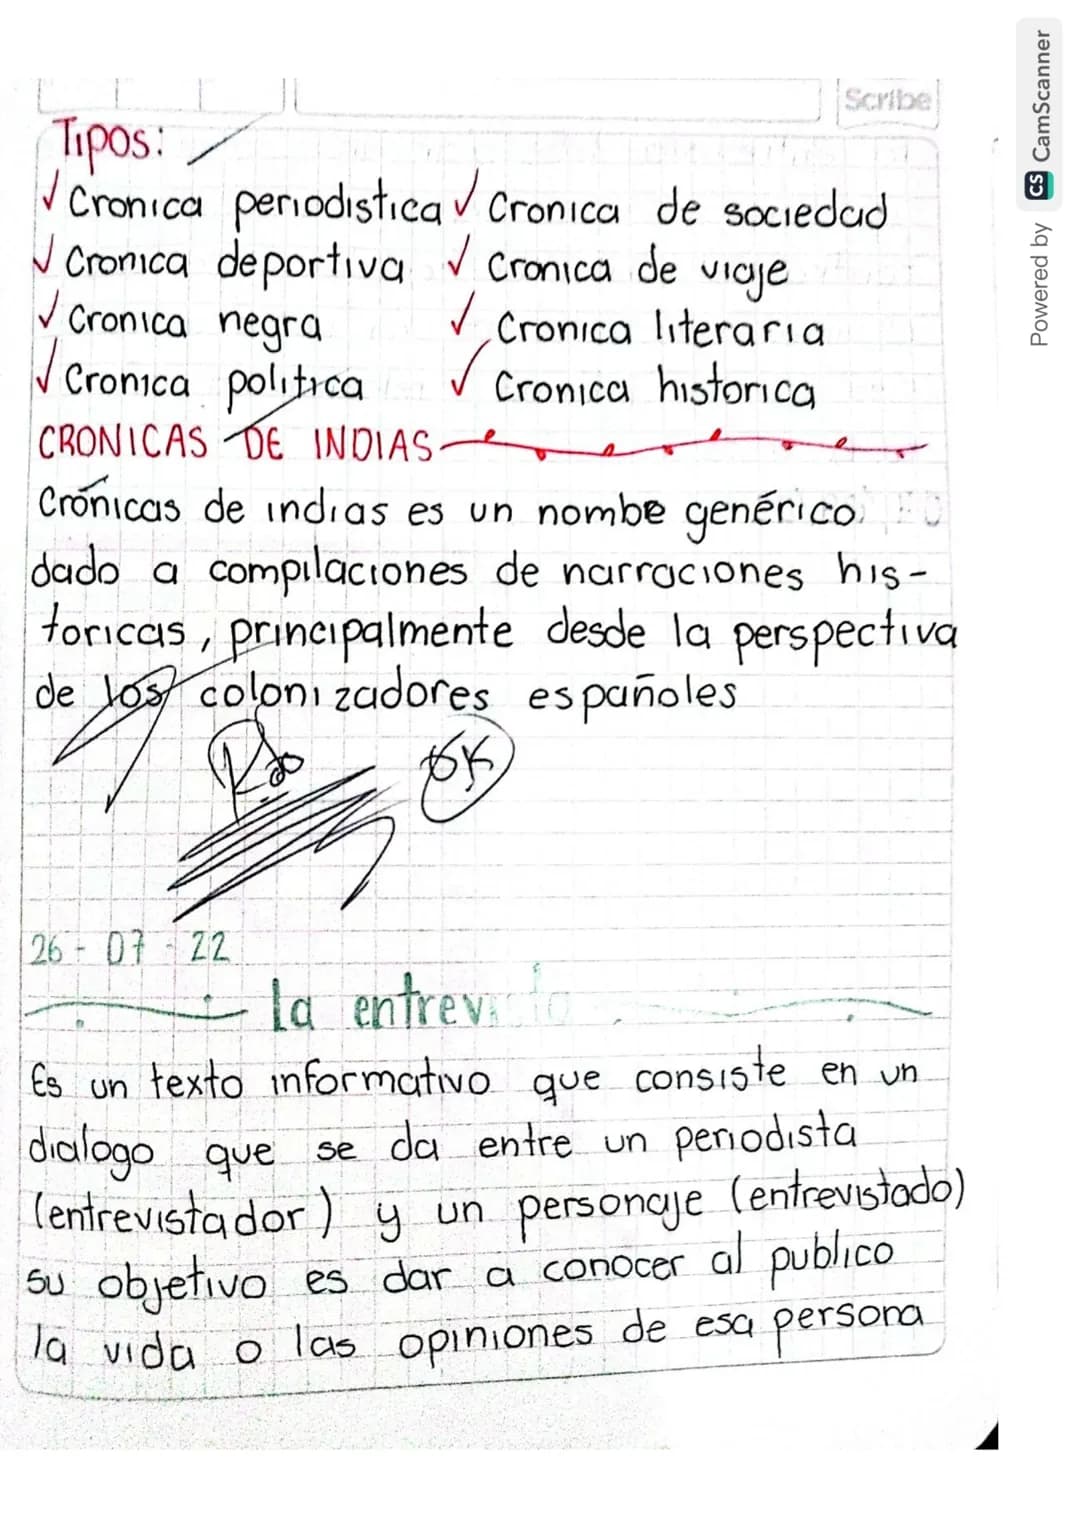 Scribe
Tipos:
✓ Cronica periodistica ✓ Cronica de sociedad
✓ Cronica deportiva ✓ Cronica de viaje
✓ Cronica negra ✓ Cronica literaria
✓ Cronica politica ✓ Cronica historica
CRONICAS DE INDIAS
Crónicas de indias es un nombe genérico
dado a compilaciones de narraciones his-
toricas, principalmente desde la perspectiva
de los colonizadores españoles
OK
26-07-22
la entrevista
Es un texto informativo que consiste en un
dialogo que se da entre un periodista
(entrevistador) y un personaje (entrevistado)
su objetivo es dar a conocer al publico
la vida o las opiniones de esa persona
Powered by CS CamScanner